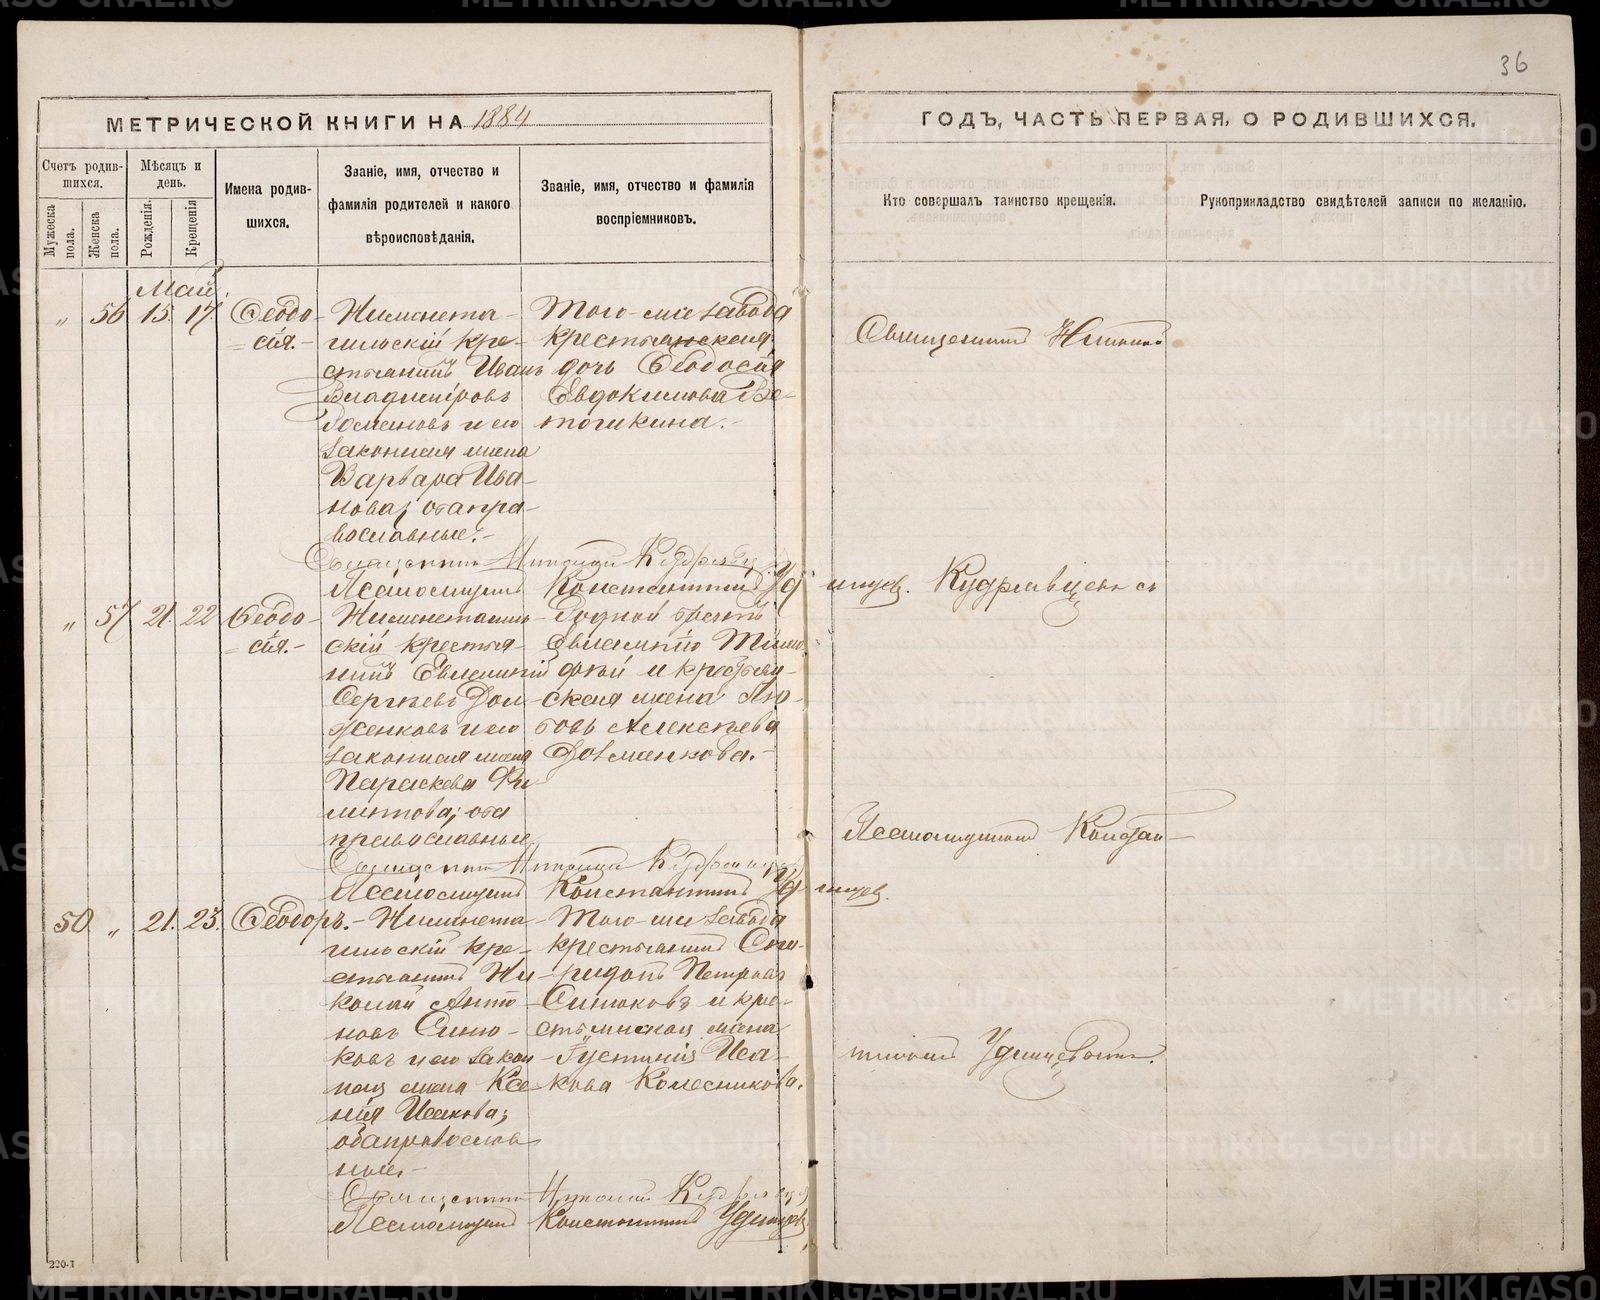 36
МЕТРИЧЕСКОЙ КНИГИ НА 1884
ГОДЪ, ЧАСТЬ ПЕРВАЯ, О РОДИВШИХСЯ.
Счетъ родив-
шихся.
Мужеска
пола.
Женска
пола.
Мѣсяцъ и
день.
Рожденія.
Крещенія
Имена родив-
шихся.
Званіе, имя, отчество и
фамилія родителей и какого
вѣроисповѣданія.
Званіе, имя, отчество и фамилія
воспріемниковъ.
Кто совершалъ таинство крещенія.
Рукоприкладство свидѣтелей записи по желанію.
Май.
„ 56 15. 17. Ѳеодо-
сія.-
Нижнета-
гильскій кре-
стьянинъ Иванъ
Владиміровъ
и его
законная жена
Варвара Ива-
нова; оба пра-
вославные.-
Того-же завода
крестьянская
дочь Ѳеодосія
Евдокимова Ве-
тошкина.-
Священникъ
Священникъ Николай Кудрявцевъ
Псаломщикъ Константинъ Удинцев. Кудрявцевъ съ
„ 57 21. 22 Ѳеодо-
сія.-
Нижнетагиль-
скій крестья-
нинъ Евлампій
Сергѣевъ Дол-
женковъ и его
законная жена
Параскева Фи-
липпова; оба
православные
Родной братъ
Евлампію Тимо-
фей и крестьян-
ская жена Лю-
бовь Алексѣева
Долженкова.-
Псаломщикомъ Констан-
Священникъ Николай Кудрявцевъ
Псаломщикъ Константинъ Удинцев.
50 „ 21. 23. Ѳеодоръ.-
Нижнета-
гильскій кре-
стьянинъ Ни-
колай Анто-
новъ Синю-
ковъ и его закон-
ная жена Ксе-
нія Исакова;
оба православ-
ные.-
Того-же завода
крестьянинъ Спи-
ридонъ Петровъ
Синюковъ и кре-
стьянская жена
Густинія Иса-
кова Колесникова.
тиномъ Удинцевымъ.
Священникъ Николай Кудрявцевъ
Псаломщикъ Константинъ Удинцевъ
220-I
METRIKI.GASO-URAL.RU